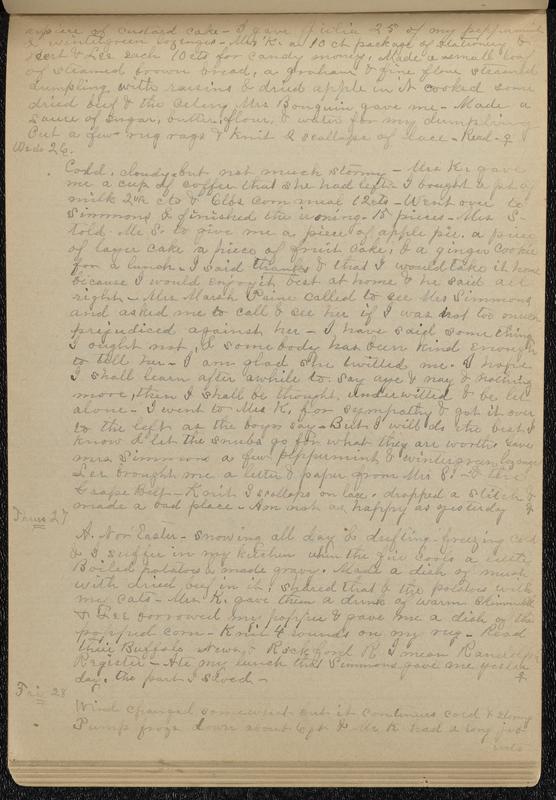 a piece of custard cake - I gave Julia 25 of my peppermint
& wintergreen lozenges - Mrs K. a 10 ct package of stationery &
Bert & Lee each 10 cts for candy money. Made a small loaf
of steamed brown bread, a graham & fine flour steamed
dumpling with raisins & dried apple in it cooked some
dried beef & the celery Mrs Bonguin gave me - Made a
sauce of sugar, butter, flour, & water for my dumpling
Cut a few rug rags & knit 2 scallops of lace - Read -
Weds 26.
Cold, cloudy but not much stormy - Mrs K. gave
me a cup of coffee that she had left. I bought a pt of
milk 2 cts & 6 lbs corn meal 12 cts - Went over to
Simmons & finished the ironing - 15 pieces - Mrs S-
told Mr S. to give me a piece of apple pie, a piece
of layer cake a piece of fruit cake, & a ginger cookie
for a lunch - I said thanks & that I would take it home
because I would enjoy it best at home & he said all
right - Mrs Marsh Paine called to see Mrs Simmons
and asked me to call & see her if I was not too much
prejudiced against her - I have said some thing
I ought not, & some body has been kind enough
to tell her - I am glad she twitted me. I hope
I shall learn after awhile to say aye & nay & nothing
more, then I shall be thought underwitted & be let
alone - I went to Mrs K. for sympathy & got it over
to the left as the boys say - But I will do the best I
know & let the snubs go for what they are worth. Gave
Mrs Simmons a few peppermint & wintergreen lozenges
Lee brought me a letter & paper from Mrs S. & the
Crape Belt - Knit 2 scallops on lace, dropped a stitch &
made a bad place - Am not as happy as yesterday
Thurs 27
A. Nor'Easter - snowing all day & drifting - freezing cold
& I suffer in my kitchen when the fire cools a little
Boiled potatoes & made gravy. Made a dish of mush
with dried beef in it; shared that & the potatoes with
my cats - Mrs K. gave them a drink of warm skimmilk
& Lee borrowed my popper & gave me a dish of the
popped corn - Knit 4 rounds on my rug - Read
their Buffalo News & Rockford R. I mean Randolph
Register - Ate my lunch that Simmons gave me yester
day, the part I saved -
Fri 28
Wind changed somewhat but it continues cold & stormy
Pump froze down about 6 ft & Mr K had a long job